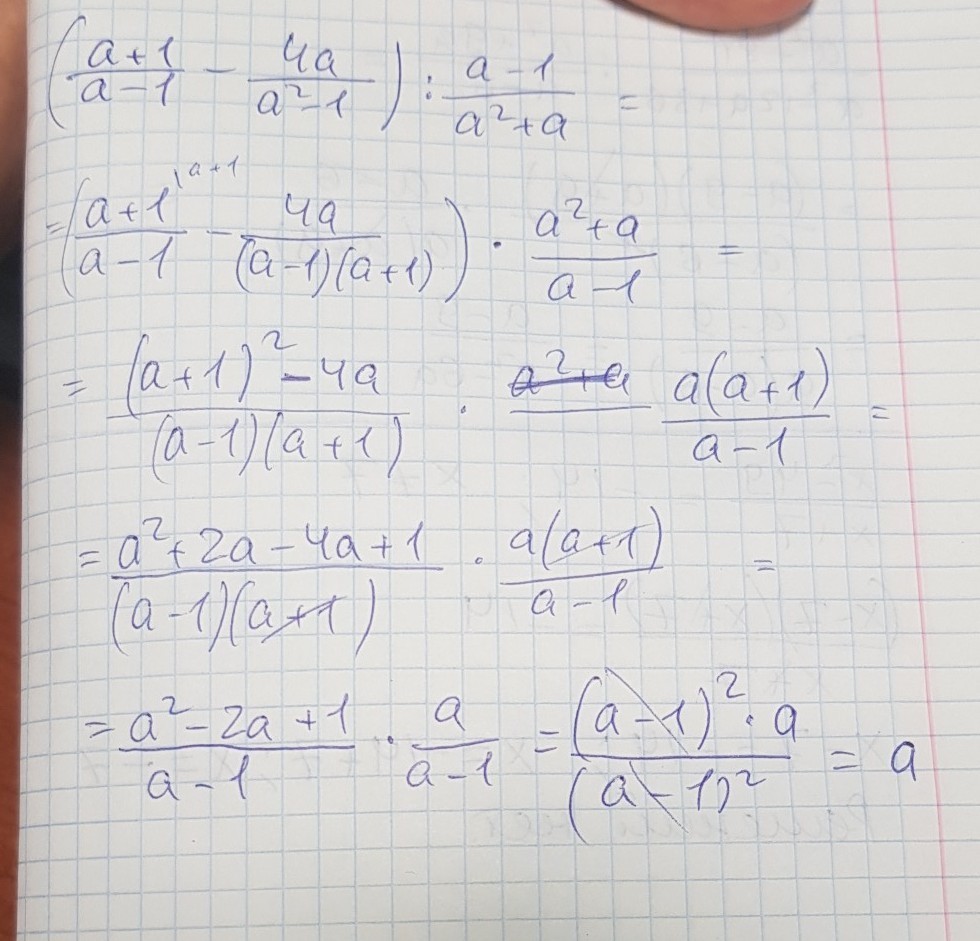 ( (a+1)/(a-1) - 4a/(a²-1) ) : (a-1)/(a²+a) =
= ( (a+1)/(a-1) \a+1 - 4a/((a-1)(a+1)) ) · (a²+a)/(a-1) =
= ((a+1)² - 4a)/((a-1)(a+1)) · a²+a a(a+1)/(a-1) =
= (a²+2a-4a+1)/((a-1)(a+1)) · a(a+1)/(a-1) =
= (a²-2a+1)/(a-1) · a/(a-1) = ((a-1)²·a)/(a-1)² = a